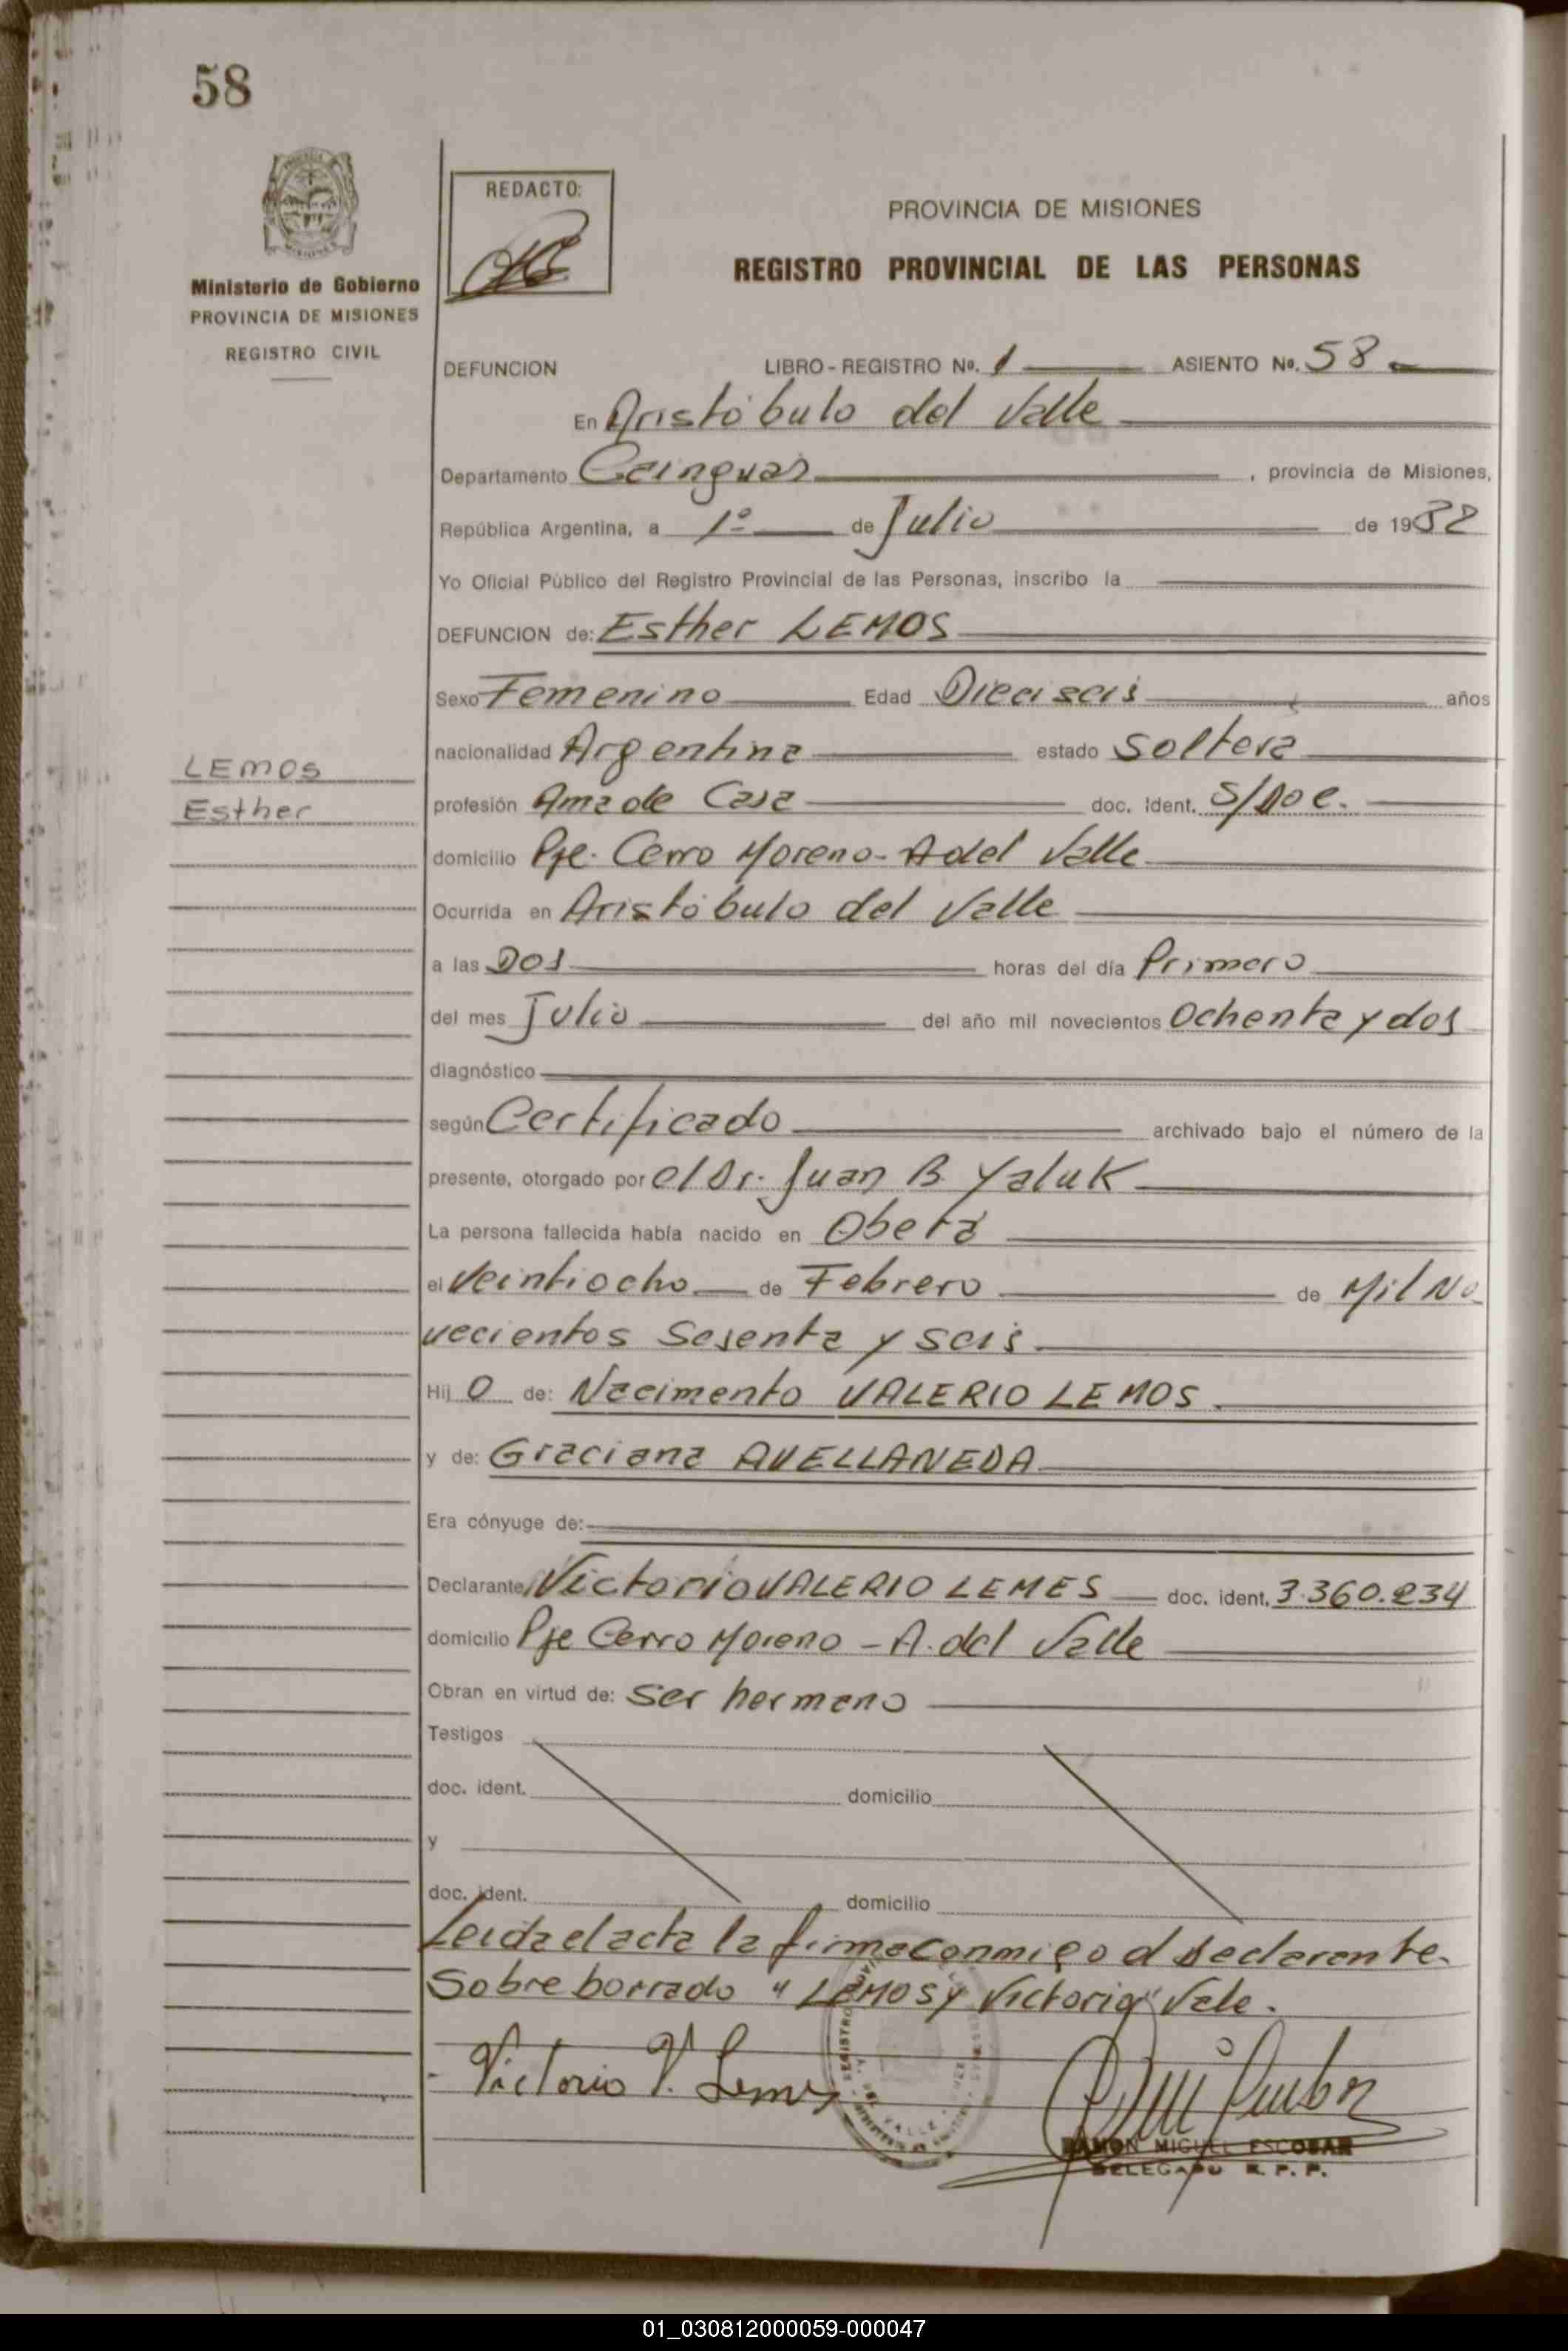 58
REDACTO:
Ministerio de Gobierno
PROVINCIA DE MISIONES
REGISTRO CIVIL
PROVINCIA DE MISIONES
REGISTRO PROVINCIAL DE LAS PERSONAS
DEFUNCION LIBRO - REGISTRO Nº. 1 ASIENTO Nº. 58
En Aristóbulo del Valle
Departamento Cainguas, provincia de Misiones,
República Argentina, a 1º de Julio de 1982
Yo Oficial Público del Registro Provincial de las Personas, inscribo la
DEFUNCION de: Esther LEMOS
Sexo Femenino Edad Dieciseis años
nacionalidad Argentina estado Soltera
LEMOS
Esther
profesión Ama de Casa doc. Ident. S/Doc.
domicilio Pje. Cerro Moreno - A del Valle
Ocurrida en Aristóbulo del Valle
a las Dos horas del día Primero
del mes Julio del año mil novecientos Ochenta y dos
diagnóstico
según Certificado archivado bajo el número de la
presente, otorgado por el Dr. Juan B. Yaluk
La persona fallecida había nacido en Oberá
el Veintiocho de Febrero de Mil No
vecientos Sesenta y seis.
Hij o de: Nacimento VALERIO LEMOS.
y de: Graciana AVELLANEDA
Era cónyuge de:
Declarante Victorio VALERIO LEMES doc. ident. 3.360.234
domicilio Pje Cerro Moreno - A. del Valle
Obran en virtud de: Ser hermano
Testigos
doc. ident. domicilio
y
doc. ident. domicilio
Leida el acta la firma conmigo el declarante.
Sobre borrado "LEMOS y Victorio" Vale.
Victorio V. Lemes
RAMON MIGUEL ESCOBAR
DELEGADO R. P. P.
01_030812000059-000047